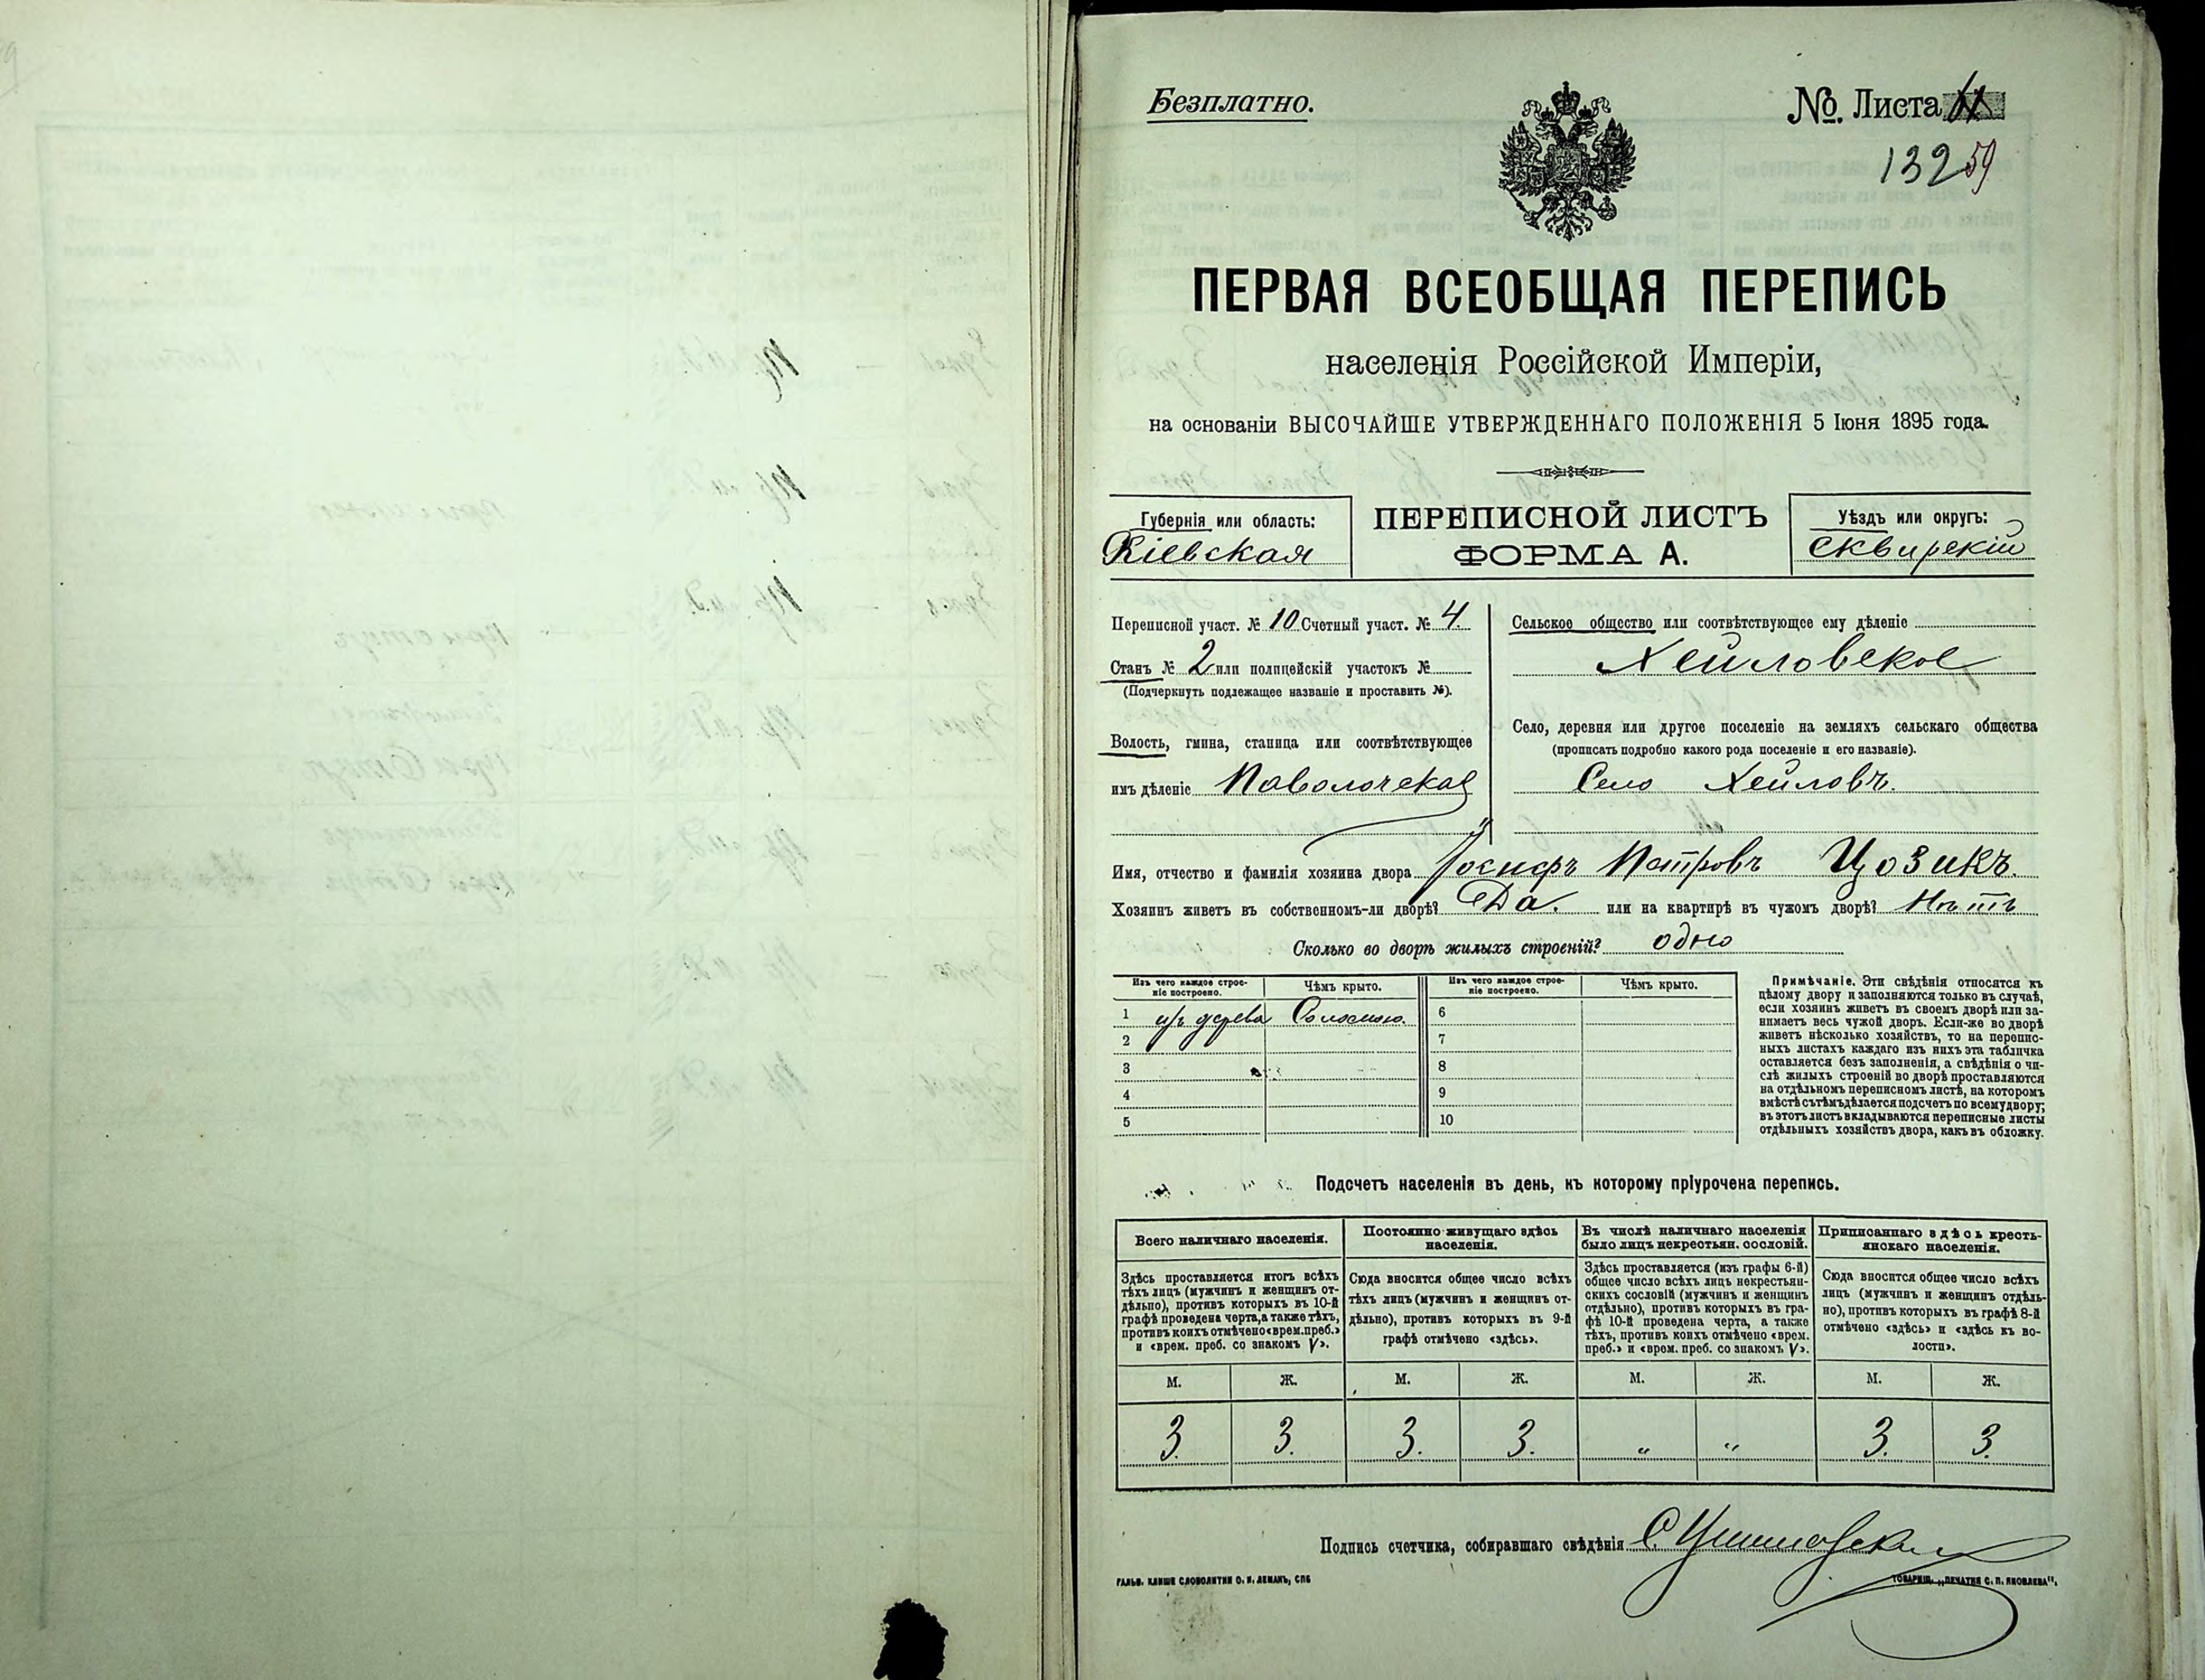 Безплатно.
№ Листа
132 59
ПЕРВАЯ ВСЕОБЩАЯ ПЕРЕПИСЬ
населенія Россійской Имперіи,
на основаніи ВЫСОЧАЙШЕ УТВЕРЖДЕННАГО ПОЛОЖЕНІЯ 5 Іюня 1895 года.
Губернія или область:
Кіевская
ПЕРЕПИСНОЙ ЛИСТЪ
ФОРМА А.
Уѣздъ или округъ:
Сквирскій
Переписной участ. № 10 Счетный участ. № 4.
Станъ № 2 или полицейскій участокъ №
(Подчеркнуть подлежащее названіе и проставить №).
Волость, гмина, станица или соотвѣтствующее
имъ дѣленіе Паволочская
Сельское общество или соотвѣтствующее ему дѣленіе
Хейловское
Село, деревня или другое поселеніе на земляхъ сельскаго общества
(прописать подробно какого рода поселеніе и его названіе).
Село Хейловъ.
Имя, отчество и фамилія хозяина двора Іосифъ Петровъ Цозикъ.
Хозяинъ живетъ въ собственномъ-ли дворѣ? Да. или на квартирѣ въ чужомъ дворѣ? Нѣтъ
Сколько во дворѣ жилыхъ строеній? одно
Изъ чего каждое строе-
ніе построено.
Чѣмъ крыто.
Изъ чего каждое строе-
ніе построено.
Чѣмъ крыто.
1 изъ дерева Соломою. 6
2 7
3 8
4 9
5 10
Примѣчаніе. Эти свѣдѣнія относятся къ
цѣлому двору и заполняются только въ случаѣ,
если хозяинъ живетъ въ своемъ дворѣ или за-
нимаетъ весь чужой дворъ. Если-же во дворѣ
живетъ нѣсколько хозяйствъ, то на перепис-
ныхъ листахъ каждаго изъ нихъ эта табличка
оставляется безъ заполненія, а свѣдѣнія о чи-
слѣ жилыхъ строеній во дворѣ проставляются
на отдѣльномъ переписномъ листѣ, на которомъ
вмѣстѣ съ тѣмъ дѣлается подсчетъ по всему двору;
въ этотъ листъ вкладываются переписные листы
отдѣльныхъ хозяйствъ двора, какъ въ обложку.
Подсчетъ населенія въ день, къ которому пріурочена перепись.
Всего наличнаго населенія.
Здѣсь проставляется итогъ всѣхъ
тѣхъ лицъ (мужчинъ и женщинъ от-
дѣльно), противъ которыхъ въ 10-й
графѣ проведена черта, а также тѣхъ,
противъ коихъ отмѣчено «врем. преб.»
и «врем. преб. со знакомъ V».
Постоянно живущаго здѣсь
населенія.
Сюда вносится общее число всѣхъ
тѣхъ лицъ (мужчинъ и женщинъ от-
дѣльно), противъ которыхъ въ 9-й
графѣ отмѣчено «здѣсь».
Въ числѣ наличнаго населенія
было лицъ некрестьян. сословій.
Здѣсь проставляется (изъ графы 6-й)
общее число всѣхъ лицъ некрестьян-
скихъ сословій (мужчинъ и женщинъ
отдѣльно), противъ которыхъ въ гра-
фѣ 10-й проведена черта, а также
тѣхъ, противъ коихъ отмѣчено «врем.
преб.» и «врем. преб. со знакомъ V».
Приписаннаго здѣсь кресть-
янскаго населенія.
Сюда вносится общее число всѣхъ
лицъ (мужчинъ и женщинъ отдѣль-
но), противъ которыхъ въ графѣ 8-й
отмѣчено «здѣсь» и «здѣсь къ во-
лости».
М. Ж. М. Ж. М. Ж. М. Ж.
3. 3. 3. 3. „ „ 3. 3.
Подпись счетчика, собиравшаго свѣдѣнія
ГАЛЬВ. КЛИШЕ СЛОВОЛИТНИ О. И. ЛЕМАНЪ, СПБ
ТОВАРИЩ. „ПЕЧАТНЯ С. П. ЯКОВЛЕВА".